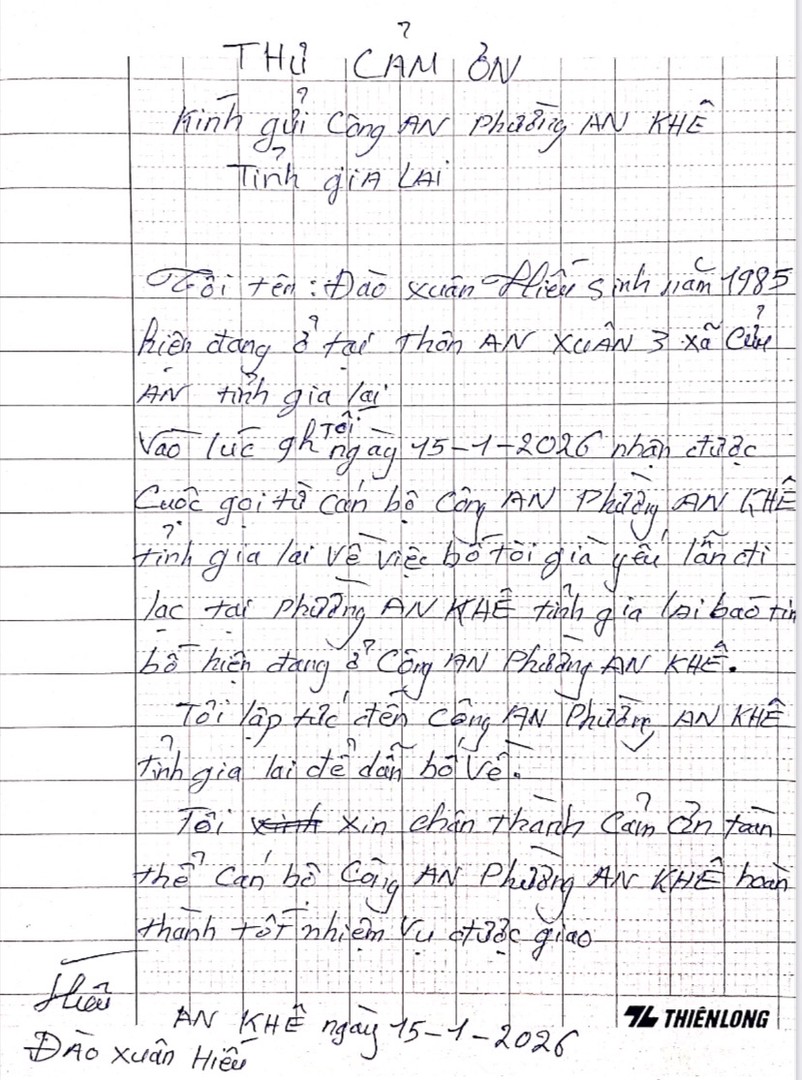 THƯ CẢM ƠN
Kính gửi Công AN Phường AN KHÊ
Tỉnh gia LAI
Tôi tên: Đào Xuân Hiếu sinh năm 1985
hiện đang ở tại Thôn AN XUÂN 3 xã Cửu
AN tỉnh gia lai
Vào lúc 9h Tối ngày 15-1-2026 nhận được
Cuộc gọi từ cán bộ Công AN Phường AN KHÊ
tỉnh gia lai về việc bố tôi già yếu lẫn đi
lạc tại Phường AN KHÊ tỉnh gia lai báo tin
bố hiện đang ở Công AN Phường AN KHÊ.
Tôi lập tức đến Công AN Phường AN KHÊ
tỉnh gia lai để dẫn bố về.
Tôi xin chân thành cảm ơn toàn
thể cán bộ Công AN Phường AN KHÊ hoàn
thành tốt nhiệm vụ được giao
Hiếu
AN KHÊ ngày 15-1-2026
Đào Xuân Hiếu
THIÊN LONG